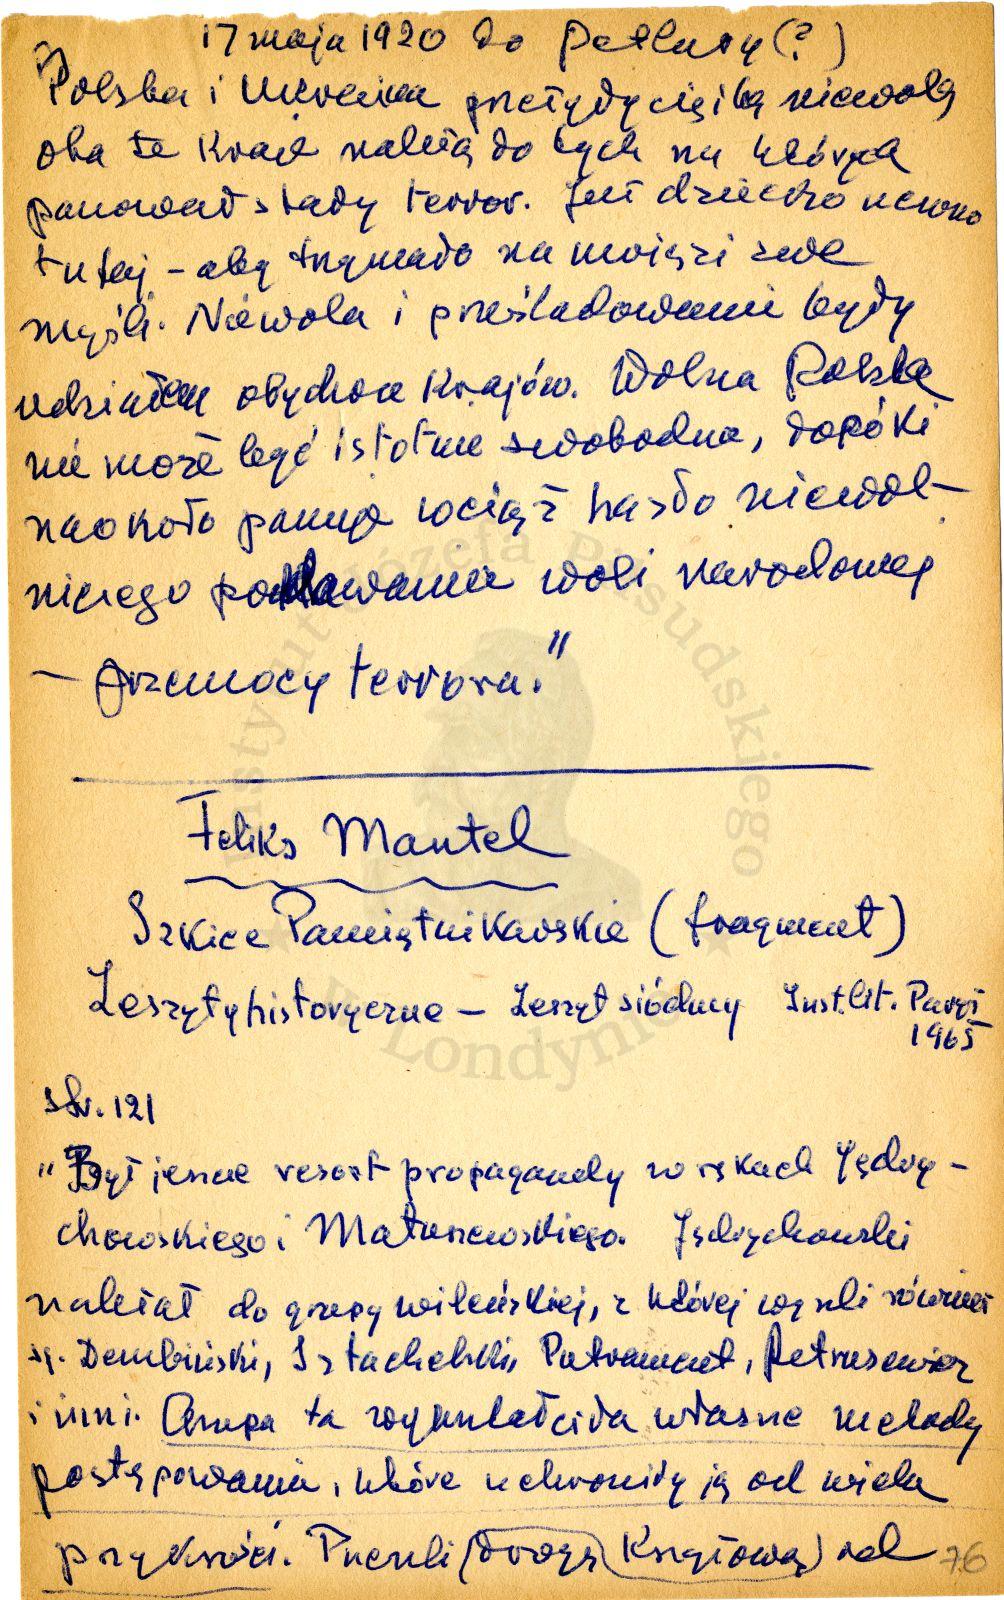 17 maja 1920 do Petlury (?)
Polska i Ukraina przeżyły ciężką niewolę
oba te kraje należą do tych na których
panował stały terror. Już dziecko uczono
tutaj - aby trzymało na uwięzi swe
myśli. Niewola i prześladowanie były
udziałem obydwu krajów. Wolna Polska
nie może być istotnie swobodna, dopóki
naokoło panuje wciąż hasło niewol-
niczego poddawania woli narodowej
- przemocy terroru."
Feliks Mantel
Szkice Pamiętnikarskie (fragment)
Zeszyty historyczne - Zeszyt siódmy Inst. Lit. Paryż
1965
str. 121
"Był jeszcze resort propagandy w rękach Jędry-
chowskiego i Matuszewskiego. Jędrychowski
należał do grupy wileńskiej, z której wyszli również
Dembiński, Sztachelski, Putrament, Petrusewicz
i inni. Grupa ta wykształciła własne metody
postępowania, które uchroniły ją od wielu
przykrości. Przeszli (drogę Krzyżową) od
76
Instytut Józefa Piłsudskiego
w Londynie